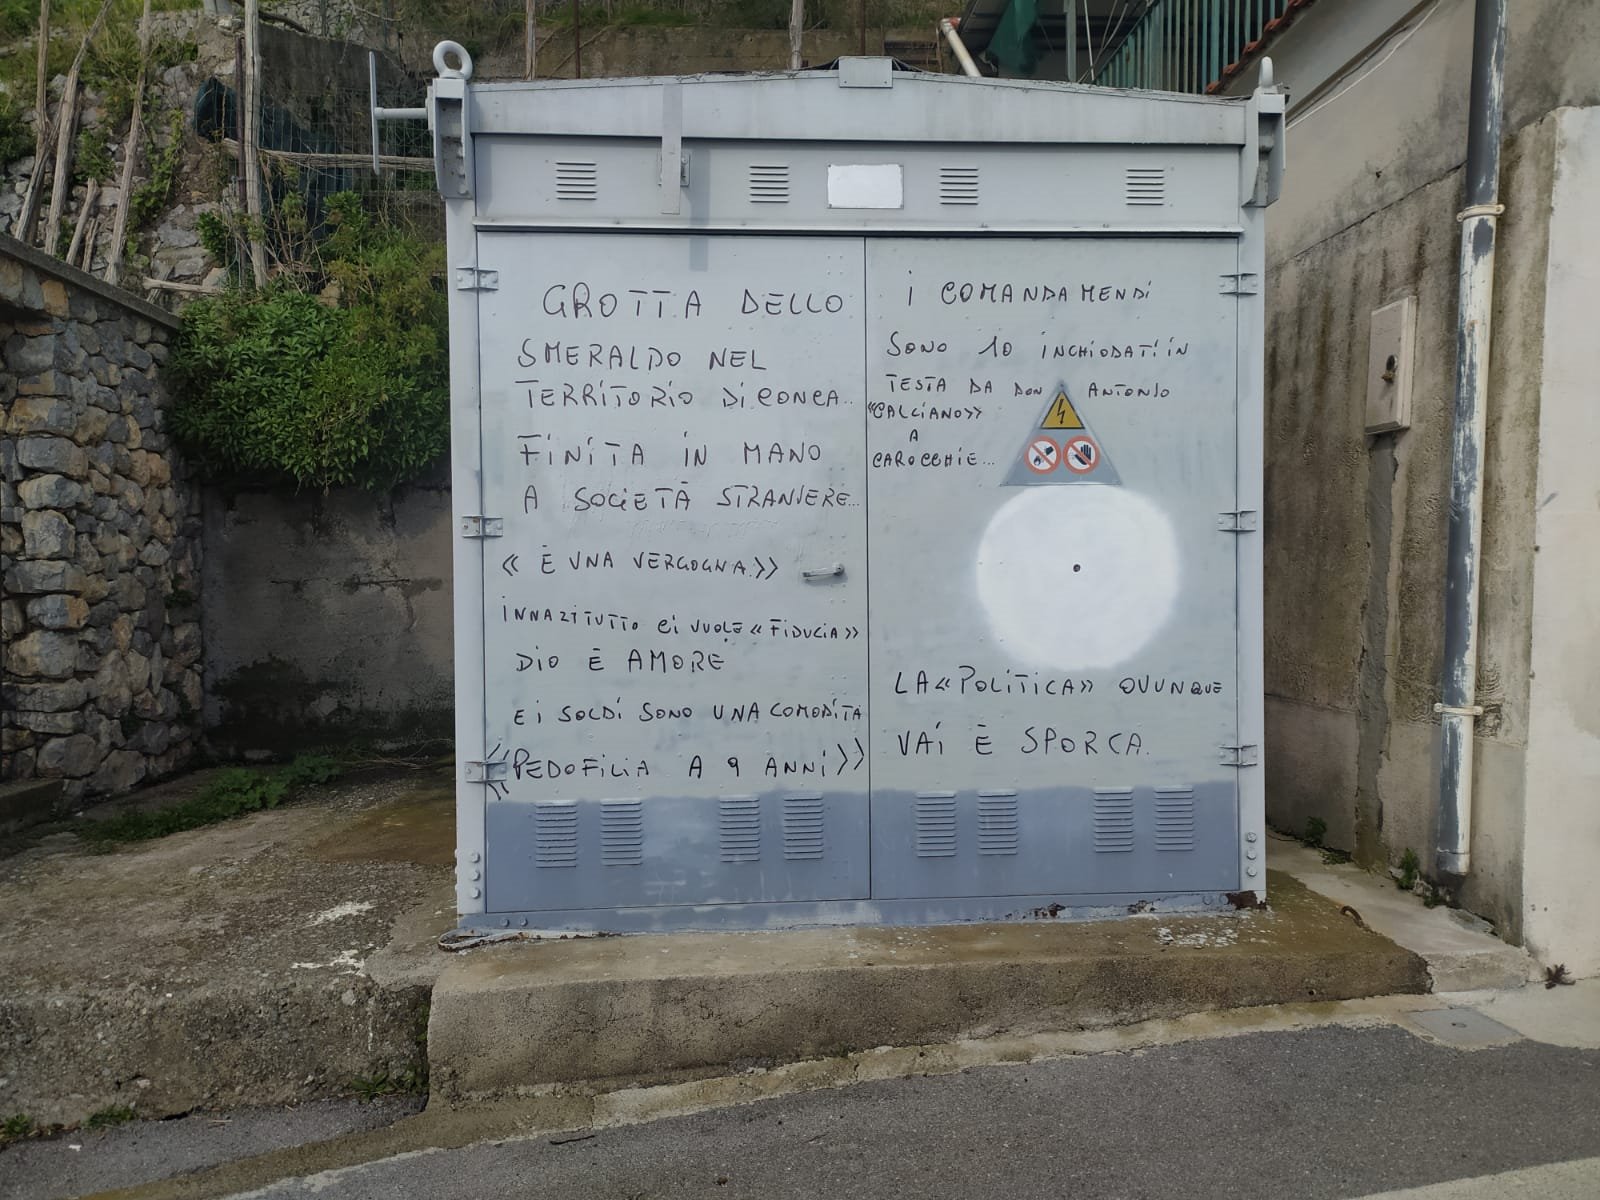 GROTTA DELLO
SMERALDO NEL
TERRITORIO DI CONCA..
FINITA IN MANO
A SOCIETÀ STRANIERE...
« È UNA VERGOGNA.»
INNAZITUTTO CI VUOLE « FIDUCIA »
DIO È AMORE
E I SOLDI SONO UNA COMODITA
«PEDOFILIA A 9 ANNI»
I COMANDAMENDI
SONO 10 INCHIODATI IN
TESTA DA DON ANTONIO
«CALCIANO»
A
CAROCCHIE...
LA «POLITICA» OVUNQUE
VAI È SPORCA.